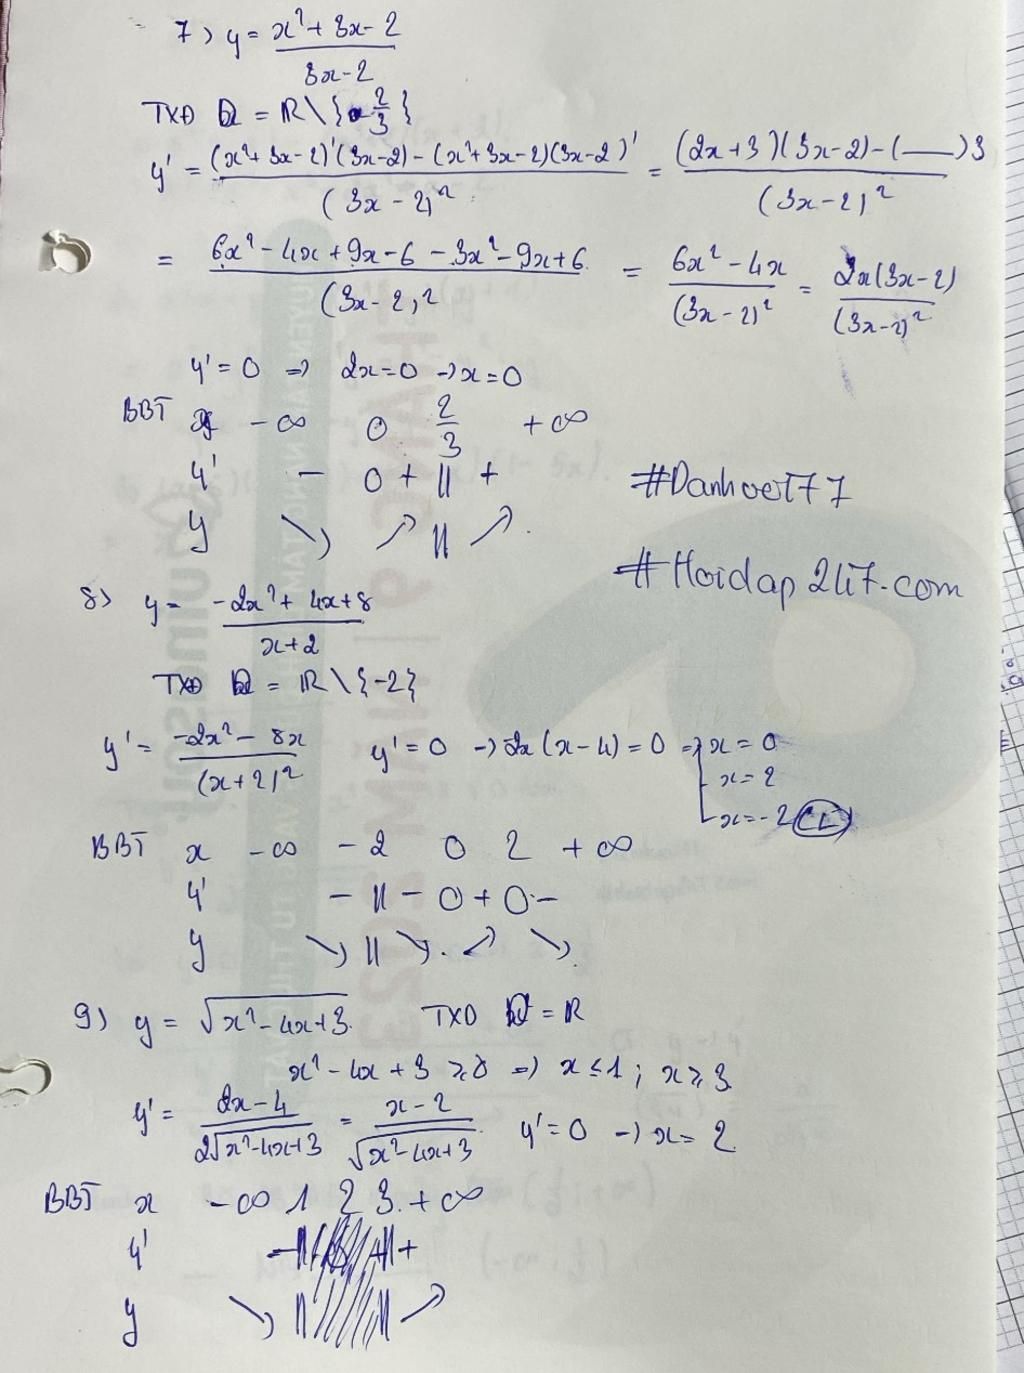 7) y = (x² + 3x - 2)/(3x - 2)
TXĐ D = R\{2/3}
y' = ((x²+3x-2)'(3x-2) - (x²+3x-2)(3x-2)')/(3x-2)² = ((2x+3)(3x-2) - (——)3)/(3x-2)²
= (6x² - 4x + 9x - 6 - 3x² - 9x + 6)/(3x-2)² = (6x² - 4x)/(3x-2)² = 2x(3x-2)/(3x-2)²
y' = 0 => 2x = 0 -> x = 0
BBT x -∞ 0 2/3 +∞
y' - 0 + || +
#Danhoert77
y ↘ ↗ || ↗
#Hoidap247.com
8) y = (-2x² + 4x + 8)/(x+2)
TXĐ D = R\{-2}
y' = (-2x² - 8x)/(x+2)² y' = 0 -> 2x(x-4) = 0 => [x = 0
x = 2
x = -2 (L)
BBT x -∞ -2 0 2 +∞
y' - || - 0 + 0 -
y ↘ || ↘ ↗ ↘
9) y = √(x² - 4x + 3) TXD D = R
x² - 4x + 3 ≥ 0 => x ≤ 1; x ≥ 3
y' = (2x-4)/(2√(x²-4x+3)) = (x-2)/√(x²-4x+3) y' = 0 -> x = 2
BBT x -∞ 1 2 3 +∞
y' - || || +
y ↘ || || ↗